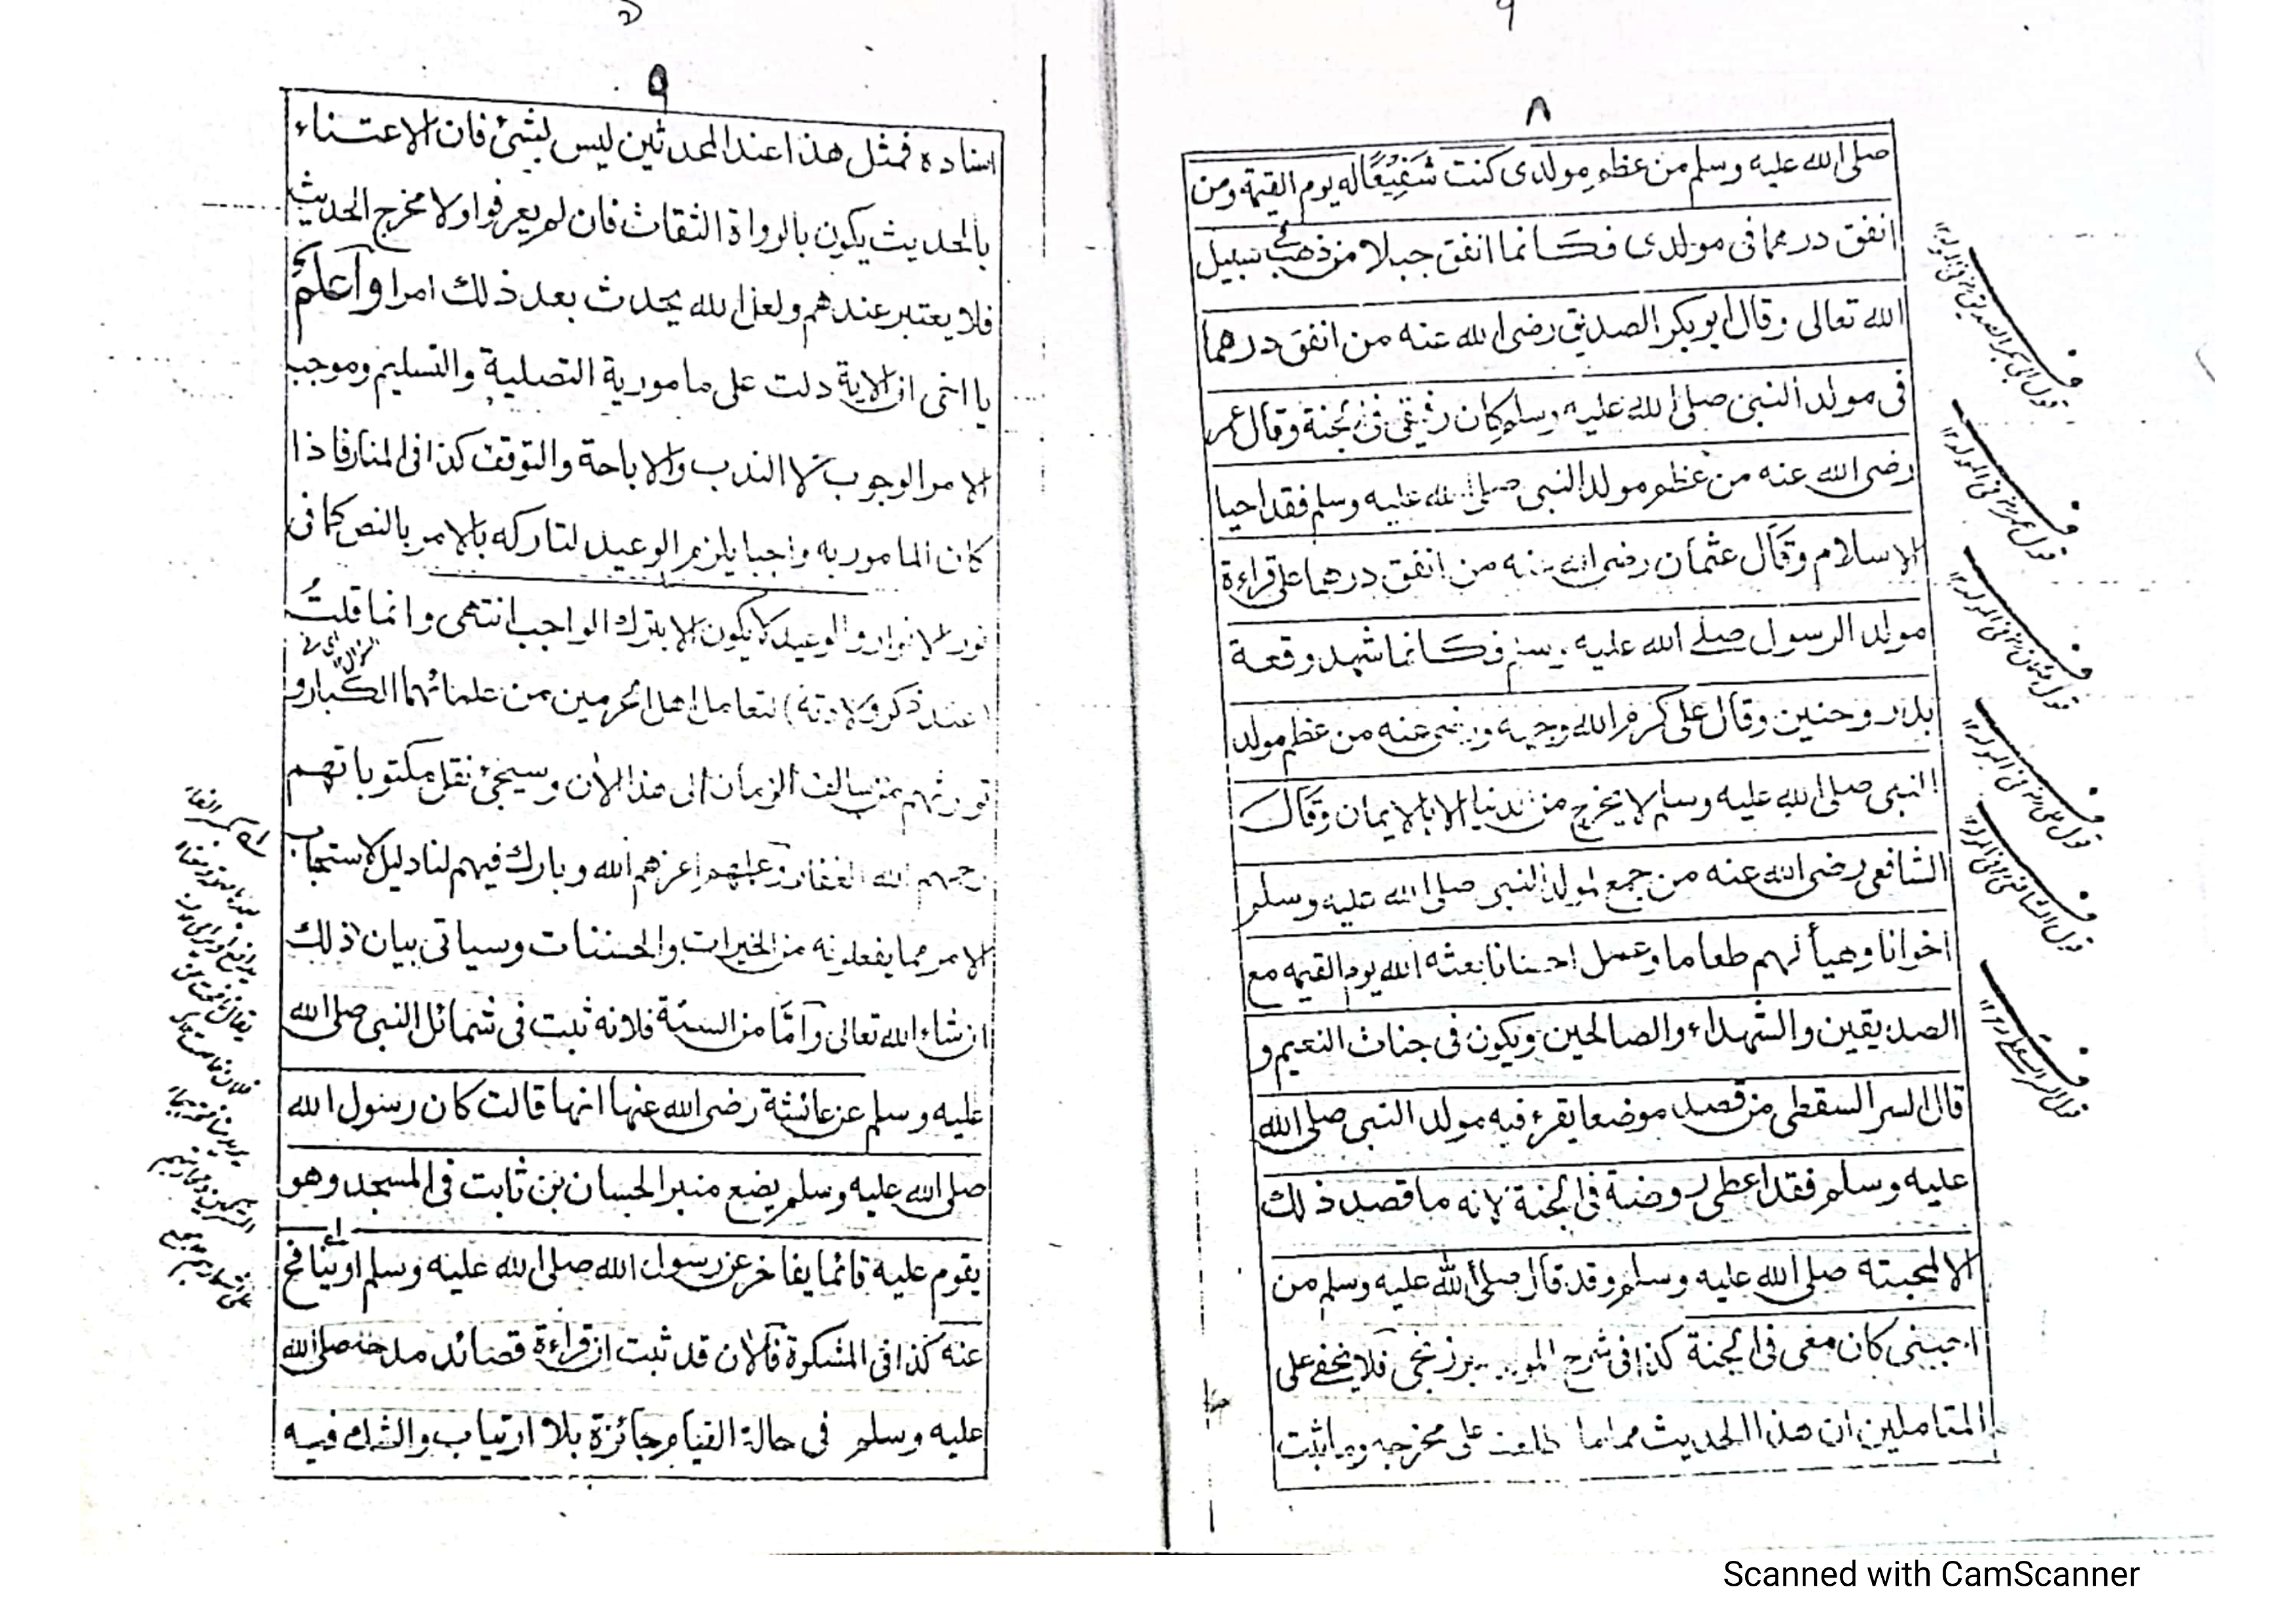 ٨
صلى الله عليه وسلم من عظم مولدى كنت شَفِيْعًا له يوم القيمة ومن
انفق درهما فى مولدى فكانما انفق جبلا من ذهب فى سبيل
الله تعالى وقال ابو بكر الصديق رضى الله عنه من انفق درهما
فى مولد النبى صلى الله عليه وسلم كان رفيقى فى الجنة وقال عمر
رضى الله عنه من عظم مولد النبى صلى الله عليه وسلم فقد احيا
الاسلام وقال عثمان رضى الله عنه من انفق درهما على قراءة
مولد الرسول صلے الله عليه وسلم فكانما شهد وقعة
بدر وحنين وقال على كرم الله وجهه ورضى عنه من عظم مولد
النبى صلى الله عليه وسلم لا يخرج من الدنيا الا بالايمان وقال
الشافعى رضى الله عنه من جمع لمولد النبى صلى الله عليه وسلم
اخوانا وهيأ لهم طعاما وعمل احسانا بعثه الله يوم القيمه مع
الصديقين والشهداء والصالحين ويكون فى جنات النعيم و
قال السر السقطى من قصد موضعا يقرء فيه مولد النبى صلى الله
عليه وسلم فقد اعطى روضة فى الجنة لانه ما قصد ذلك
الا لمحبته صلى الله عليه وسلم وقد قال صلى الله عليه وسلم من
احبنى كان معى فى الجنة كذا فى شرح المولد برزنجى فلا يخفے على
المتاملين ان هذا الحديث مما ما طلعت على مخرجه وما ثبت
قول ابى بكر الصديق رض فى المولد ١٢
قول عمر رض فى المولد ١٢
قول عثمان رض فى المولد ١٢
قول على رض فى المولد ١٢
قول الشافعى فى المولد ١٢
قول السر السقطے ١٢
٩
اسناده فمثل هذا عند المحدثين ليس بشئ فان الاعتناء
بالحديث يكون بالرواة الثقات فان لم يعرفوا ولا مخرج الحديث
فلا يعتبر عندهم ولعل الله يحدث بعد ذلك امرا وآعلم
يا اخى ان الاية دلت على مامورية التصلية والتسليم وموجب
الامر الوجوب لا الندب والاباحة والتوقف كذا فى المنار فاذا
كان المامور به واجبا يلزم الوعيد لتاركه بالامر بالنص كما فى
نور الانوار والوعيد لا يكون الا بترك الواجب انتهى وانما قلتُ
(عند ذكر ولادته) لتعامل اهل الحرمين من علمائهما الكبار و
تورثهم من سالف الزمان الى هذا الآن وسيجئ نقل مكتوباتهم
رحمهم الله الغفار وعليهم اعزهم الله وبارك فيهم لنا دليل لاستحباب
الامر مما يفعلونه من الخيرات والحسنات وسياتى بيان ذلك
ان شاء الله تعالى وآمّا من السنة فلانه ثبت فى شمائل النبى صلى الله
عليه وسلم عن عائشة رضى الله عنها انها قالت كان رسول الله
صلى الله عليه وسلم يضع منبرا لحسان بن ثابت فى المسجد وهو
يقوم عليه قائما يفاخر عن رسول الله صلى الله عليه وسلم او ينافح
عنه كذا فى المشكوة فالآن قد ثبت ان قراءة قصائد مدحه صلى الله
عليه وسلم فى حالة القيام جائزة بلا ارتياب والشك فيه
Scanned with CamScanner